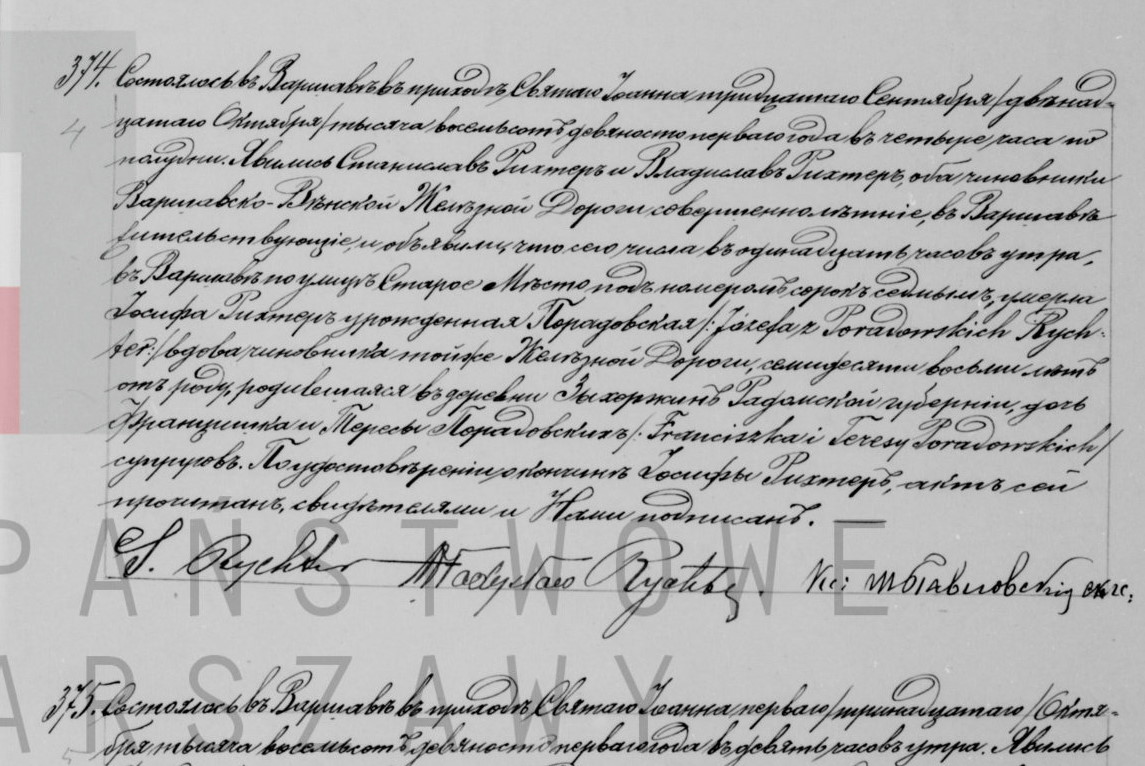 374. Состоялось въ Варшавѣ въ приходѣ Святаго Іоанна тридцатаго Сентября /двѣнад-
4 цатаго Октября/ тысяча восемьсотъ девяносто перваго года въ четыре часа по
полудни. Явились Станиславъ Рихтеръ и Владиславъ Рихтеръ, оба чиновники
Варшавско-Вѣнской Желѣзной Дороги, совершеннолѣтніе, въ Варшавѣ
жительствующіе, и объявили, что сего числа въ одинадцать часовъ утра,
въ Варшавѣ по улицѣ Старое Мѣсто подъ номеромъ сорокъ седьмымъ, умерла
Іосифа Рихтеръ урожденная Порадовская /: Józefa z Poradowskich Rych-
ter:/ вдова чиновника той же Желѣзной Дороги, семидесяти восьми лѣтъ
отъ роду, родившаяся въ деревни Зыхоржинъ Радомской губерніи, дочь
Францишка и Тересы Порадовскихъ /: Franciszka i Teresy Poradowskich/
супруговъ. По удостовѣреніи о кончинѣ Іосифы Рихтеръ, актъ сей
прочитанъ, свидѣтелями и Нами подписанъ. —
S. Rychter Władysław Rychter.
PAŃSTWOWE
WARSZAWY
375. Состоялось въ Варшавѣ въ приходѣ Святаго Іоанна перваго /тринадцатаго/ Октя-
бря тысяча восемьсотъ девяносто перваго года въ девять часовъ утра. Явились